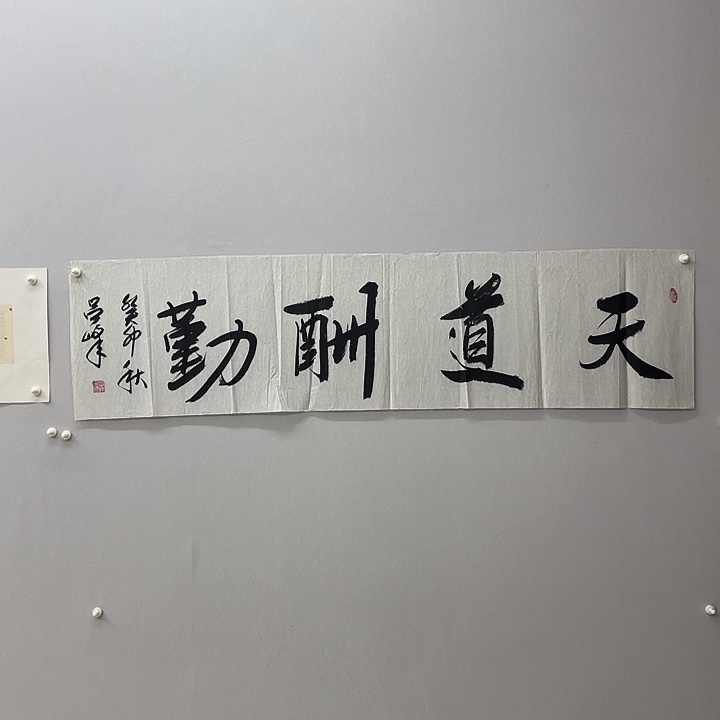 天道酬勤
癸卯秋
吕峰